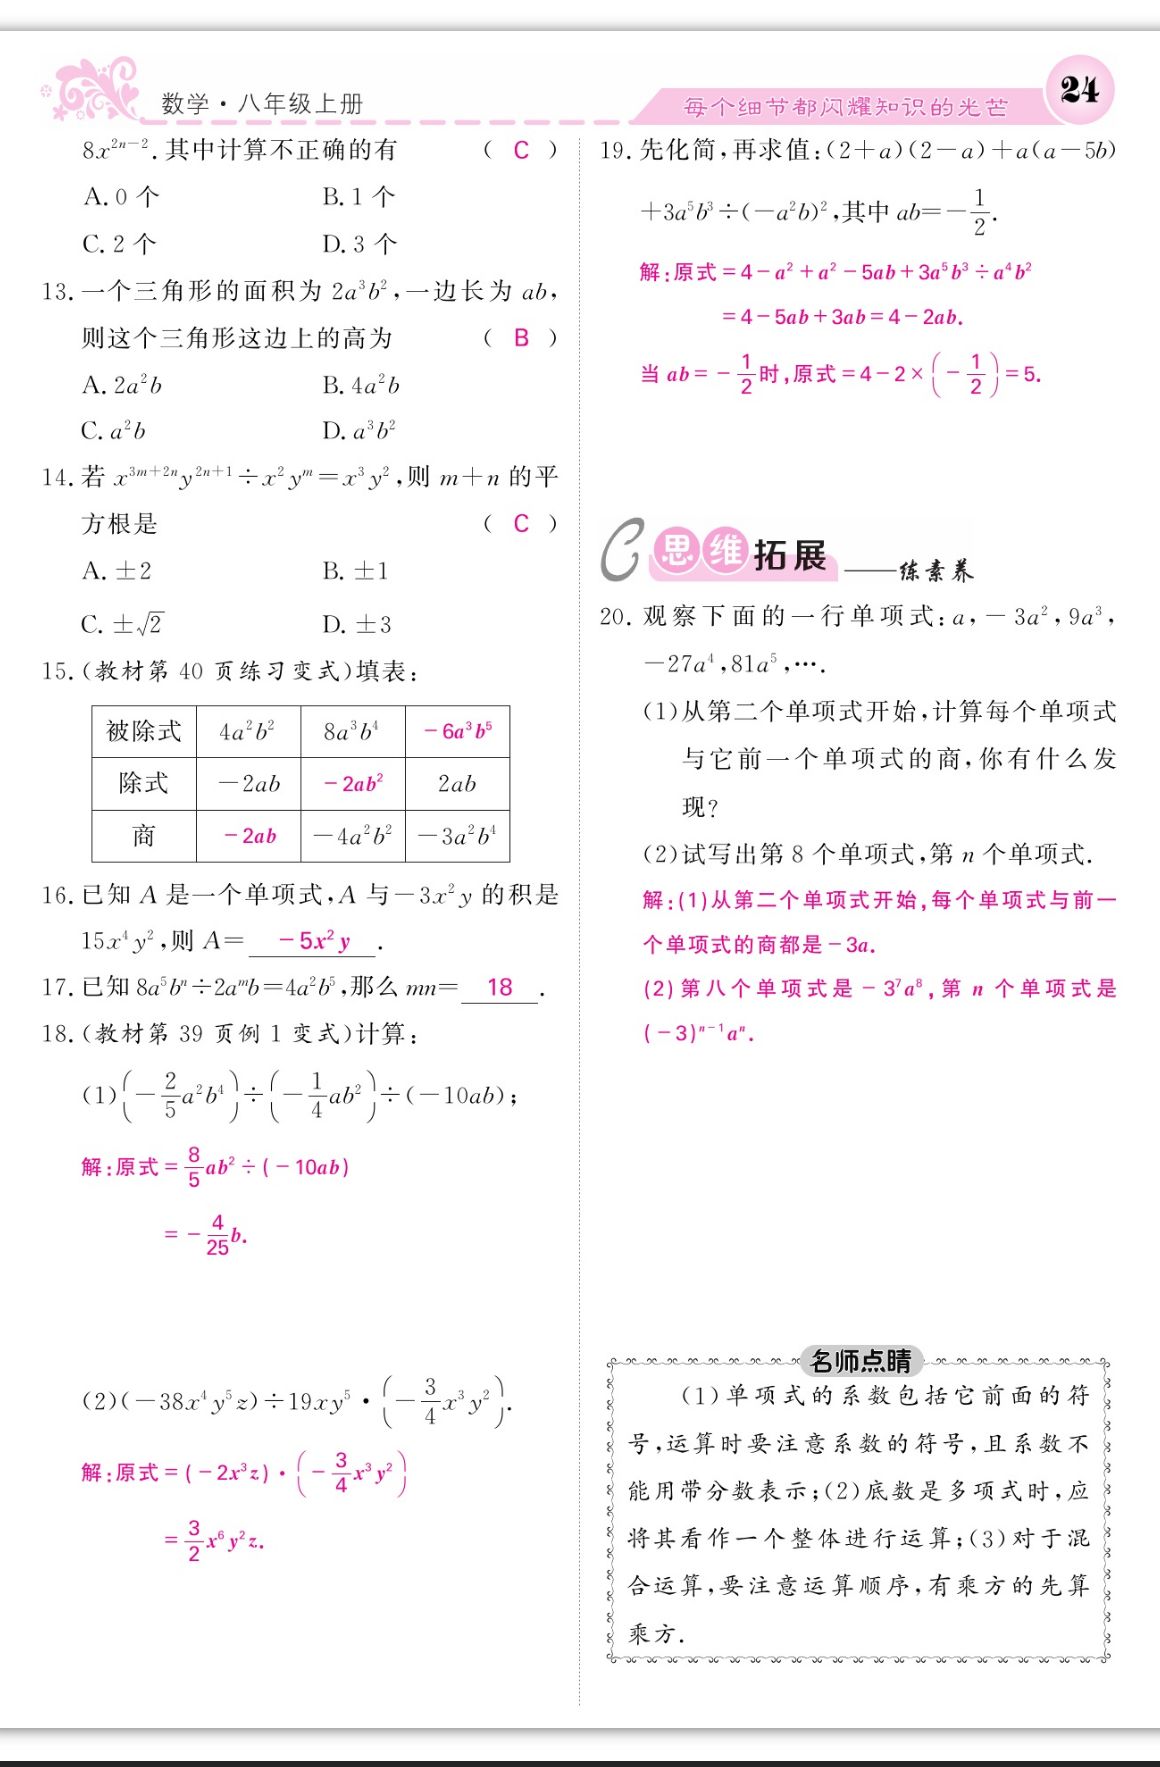 数学·八年级上册
每个细节都闪耀知识的光芒
24
8x²ⁿ⁻².其中计算不正确的有 ( C )
A.0 个 B.1 个
C.2 个 D.3 个
13.一个三角形的面积为 2a³b²,一边长为 ab,
则这个三角形这边上的高为 ( B )
A.2a²b B.4a²b
C.a²b D.a³b²
14.若 x³ᵐ⁺²ⁿy²ⁿ⁺¹÷x²yᵐ=x³y²,则 m+n 的平
方根是 ( C )
A.±2 B.±1
C.±√2 D.±3
15.(教材第 40 页练习变式)填表:
被除式 4a²b² 8a³b⁴ -6a³b⁵
除式 -2ab -2ab² 2ab
商 -2ab -4a²b² -3a²b⁴
16.已知 A 是一个单项式,A 与-3x²y 的积是
15x⁴y²,则 A= -5x²y .
17.已知 8a⁵bⁿ÷2aᵐb=4a²b⁵,那么 mn= 18 .
18.(教材第 39 页例 1 变式)计算:
(1)(-2/5a²b⁴)÷(-1/4ab²)÷(-10ab);
解:原式=8/5ab²÷(-10ab)
=-4/25b.
(2)(-38x⁴y⁵z)÷19xy⁵·(-3/4x³y²).
解:原式=(-2x³z)·(-3/4x³y²)
=3/2x⁶y²z.
19.先化简,再求值:(2+a)(2-a)+a(a-5b)
+3a⁵b³÷(-a²b)²,其中 ab=-1/2.
解:原式=4-a²+a²-5ab+3a⁵b³÷a⁴b²
=4-5ab+3ab=4-2ab.
当 ab=-1/2时,原式=4-2×(-1/2)=5.
C 思维拓展 ——练素养
20.观察下面的一行单项式:a,-3a²,9a³,
-27a⁴,81a⁵,….
(1)从第二个单项式开始,计算每个单项式
与它前一个单项式的商,你有什么发
现?
(2)试写出第 8 个单项式,第 n 个单项式.
解:(1)从第二个单项式开始,每个单项式与前一
个单项式的商都是-3a.
(2)第八个单项式是-3⁷a⁸,第 n 个单项式是
(-3)ⁿ⁻¹aⁿ.
名师点睛
(1)单项式的系数包括它前面的符
号,运算时要注意系数的符号,且系数不
能用带分数表示;(2)底数是多项式时,应
将其看作一个整体进行运算;(3)对于混
合运算,要注意运算顺序,有乘方的先算
乘方.